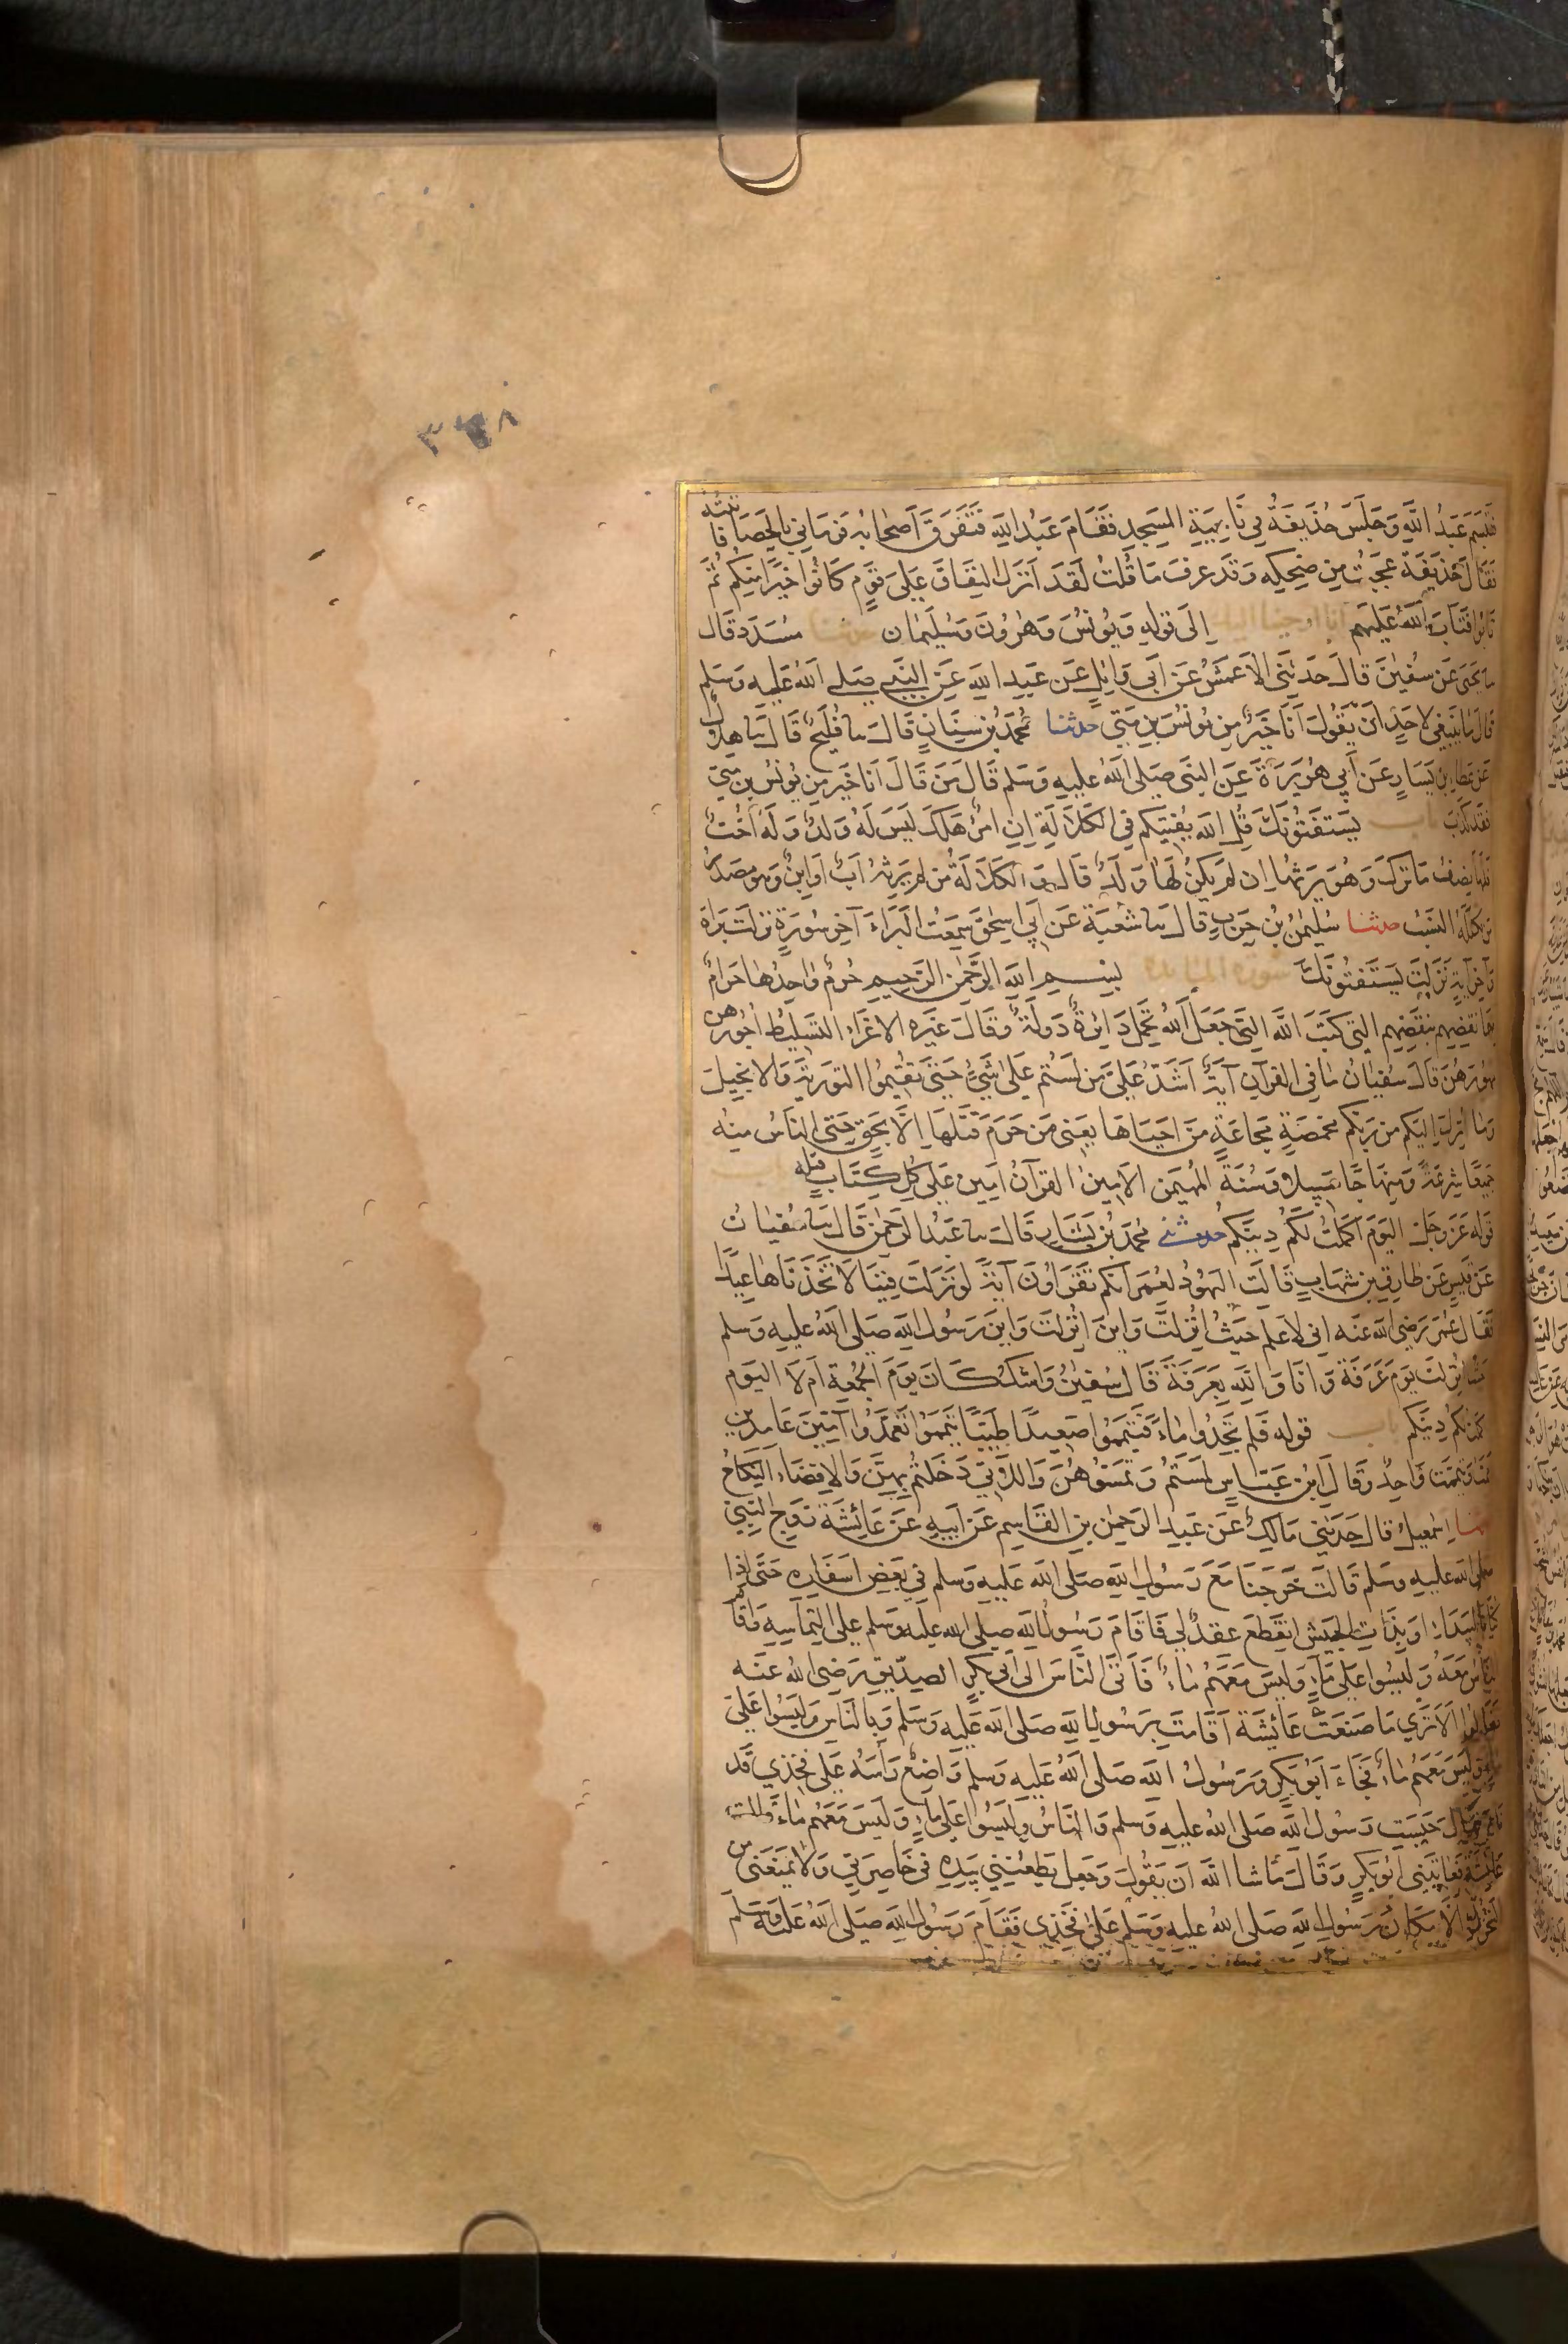 ٣٣٨
فتبسم عبد الله وجلس حذيفة في ناحية المسجد فقام عبد الله فتفرق أصحابه فرماني بالحصا فاتيته
فقال حذيفة عجبت من ضحكه وقد عرف ما قلت لقد انزل النفاق على قوم كانوا خيرا منكم ثم
تابوا فتاب الله عليهم انا اوحينا اليك الى قوله ويونس وهرون وسليمان حدثنا مسدد قال
سا يحيى عن سفين قال حدثني الاعمش عن ابي وايل عن عبد الله عن النبي صلى الله عليه وسلم
قال ما ينبغي لاحد ان يقول انا خير من يونس بن متى حدثنا محمد بن سنان قال سا فليح قال سا هلال
عن عطاء بن يسار عن أبي هريرة عن النبي صلى الله عليه وسلم قال من قال انا خير من يونس بن متى
فقد كذب باب يستفتونك قل الله يفتيكم في الكلالة إن امرؤ هلك ليس له ولد وله أخت
فلها نصف ما ترك وهو يرثها ان لم يكن لها ولد قال و الكلالة من لم يرثه اب او ابن وهو مصدر
من تكلله النسب حدثنا سليمن بن حرب قال سا شعبة عن ابي اسحق سمعت البراء آخر سورة نزلت براة
وآخر آية نزلت يستفتونك سورة المايدة بسم الله الرحمن الرحيم حرم واحدها حرام
فبما نقضهم بنقضهم التي كتب الله التي جعل الله تحمل دائرة دولة وقال غيره الاغراء التسليط اجورهن
مهورهن قال سفيان ما في القرآن آية اشد علي من لستم على شيء حتى تقيموا التورية والانجيل
وما انزل اليكم من ربكم مخمصة مجاعة من احياها يعني من حرم قتلها الا بحق حتى الناس منه
جميعا شرعة ومنهاجا سبيلا وسنة المهيمن الامين القرآن امين على كل كتاب قبله باب
قوله عز وجل اليوم اكملت لكم دينكم حدثني محمد بن بشار قال سا عبد الرحمن قال سا سفيان
عن قيس عن طارق بن شهاب قالت اليهود لعمر انكم تقراون آية لو نزلت فينا لاتخذناها عيدا
فقال عمر رضي الله عنه اني لاعلم حيث انزلت واين انزلت واين رسول الله صلى الله عليه وسلم
حيث انزلت يوم عرفة وانا والله بعرفة قال سفين واشك كان يوم الجمعة ام لا اليوم
اكملت لكم دينكم باب قوله فلم تجدوا ماء فتيمموا صعيدا طيبا تيمموا تعمدوا آمين عامدين
اممت وتيممت واحد وقال ابن عباس لمستم وتمسوهن واللاتي دخلتم بهن والافضاء النكاح
حدثنا إسمعيل قال حدثني مالك عن عبد الرحمن بن القاسم عن ابيه عن عائشة زوج النبي
صلى الله عليه وسلم قالت خرجنا مع رسول الله صلى الله عليه وسلم في بعض اسفاره حتى إذا
كنا بالبيداء او بذات الجيش انقطع عقد لي فاقام رسول الله صلى الله عليه وسلم على التماسه واقام
الناس معه وليسوا على ماء وليس معهم ماء فاتى الناس الى ابي بكر الصديق رضي الله عنه
فقالوا الا ترى ما صنعت عائشة اقامت برسول الله صلى الله عليه وسلم وبالناس وليسوا على
ماء وليس معهم ماء فجاء ابو بكر ورسول الله صلى الله عليه وسلم واضع رأسه على فخذي قد
نام فقال حبست رسول الله صلى الله عليه وسلم والناس وليسوا على ماء وليس معهم ماء قالت
عائشة فعاتبني ابو بكر وقال ما شا الله ان يقول وجعل يطعنني بيده في خاصرتي ولا يمنعني من
التحرك الا مكان رسول الله صلى الله عليه وسلم على فخذي فقام رسول الله صلى الله عليه وسلم